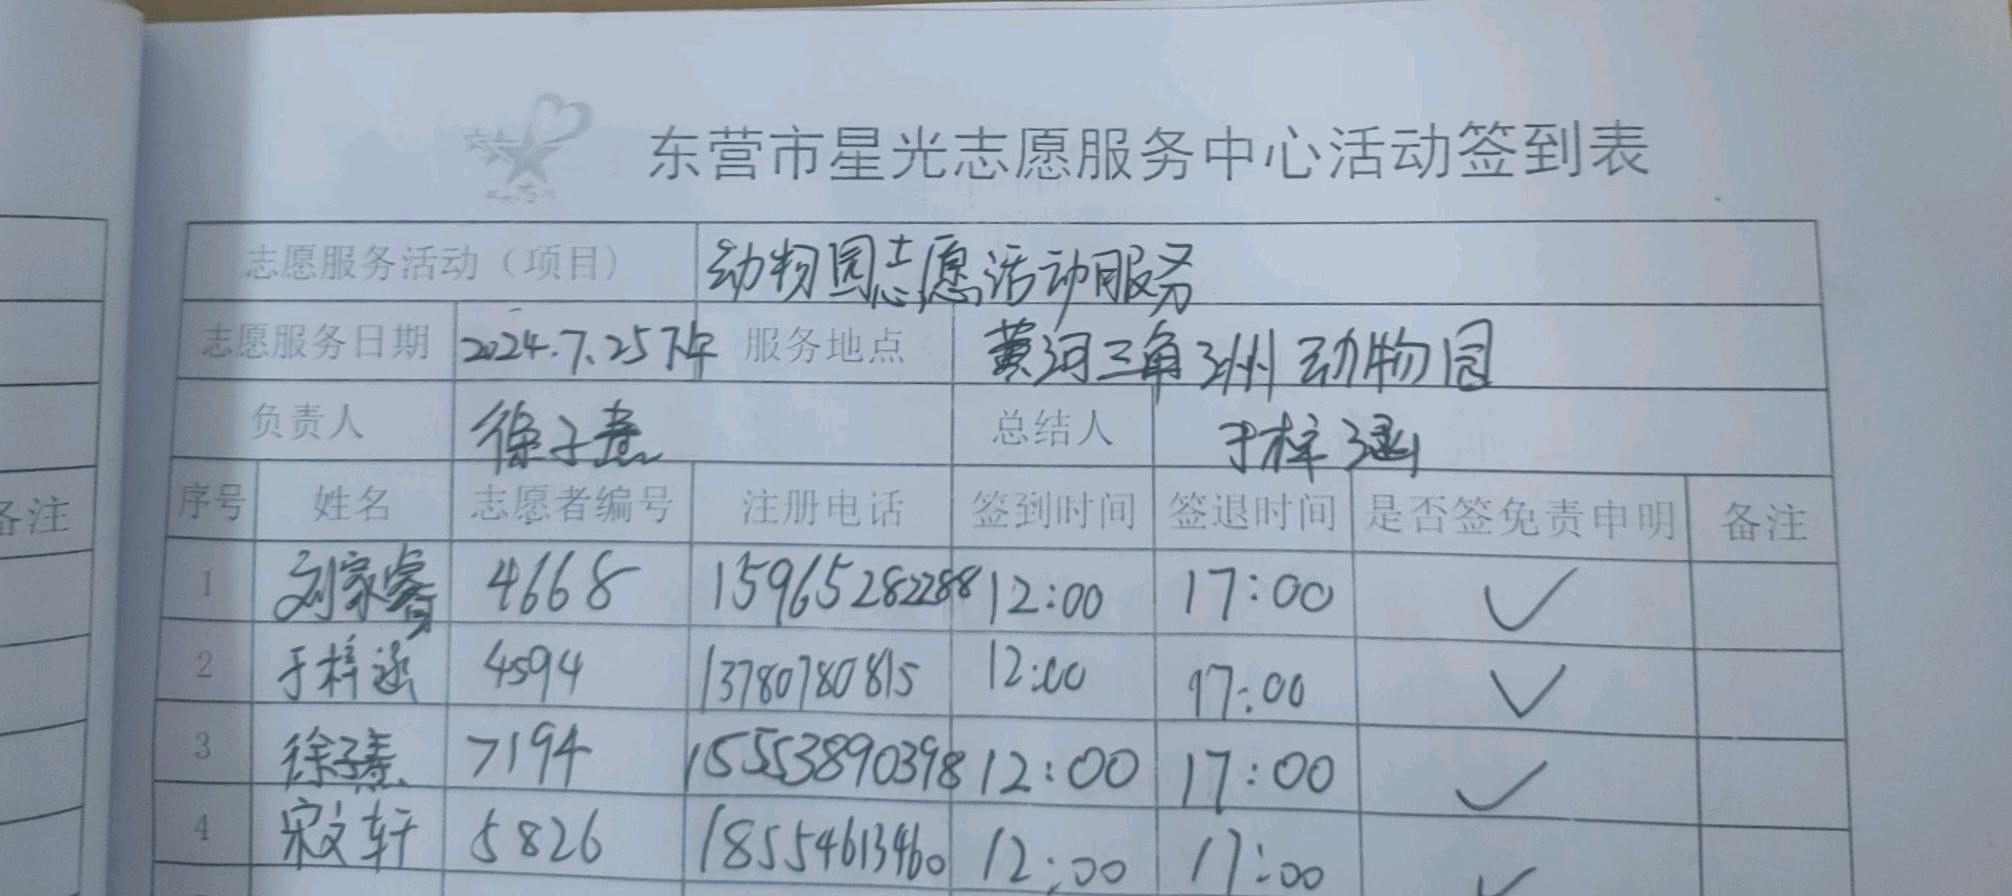 东营市星光志愿服务中心活动签到表
志愿服务活动（项目） 动物园志愿活动服务
志愿服务日期 2024.7.25下午 服务地点 黄河三角洲动物园
负责人 徐子 总结人 于梓涵
备注
序号 姓名 志愿者编号 注册电话 签到时间 签退时间 是否签免责申明 备注
1 刘家睿 4668 15965282288 12:00 17:00 ✓
2 于梓涵 4594 13780780815 12:00 17:00 ✓
3 徐子 7194 15553890398 12:00 17:00 ✓
4 宋文轩 5826 18554613460 12:00 17:00 ✓